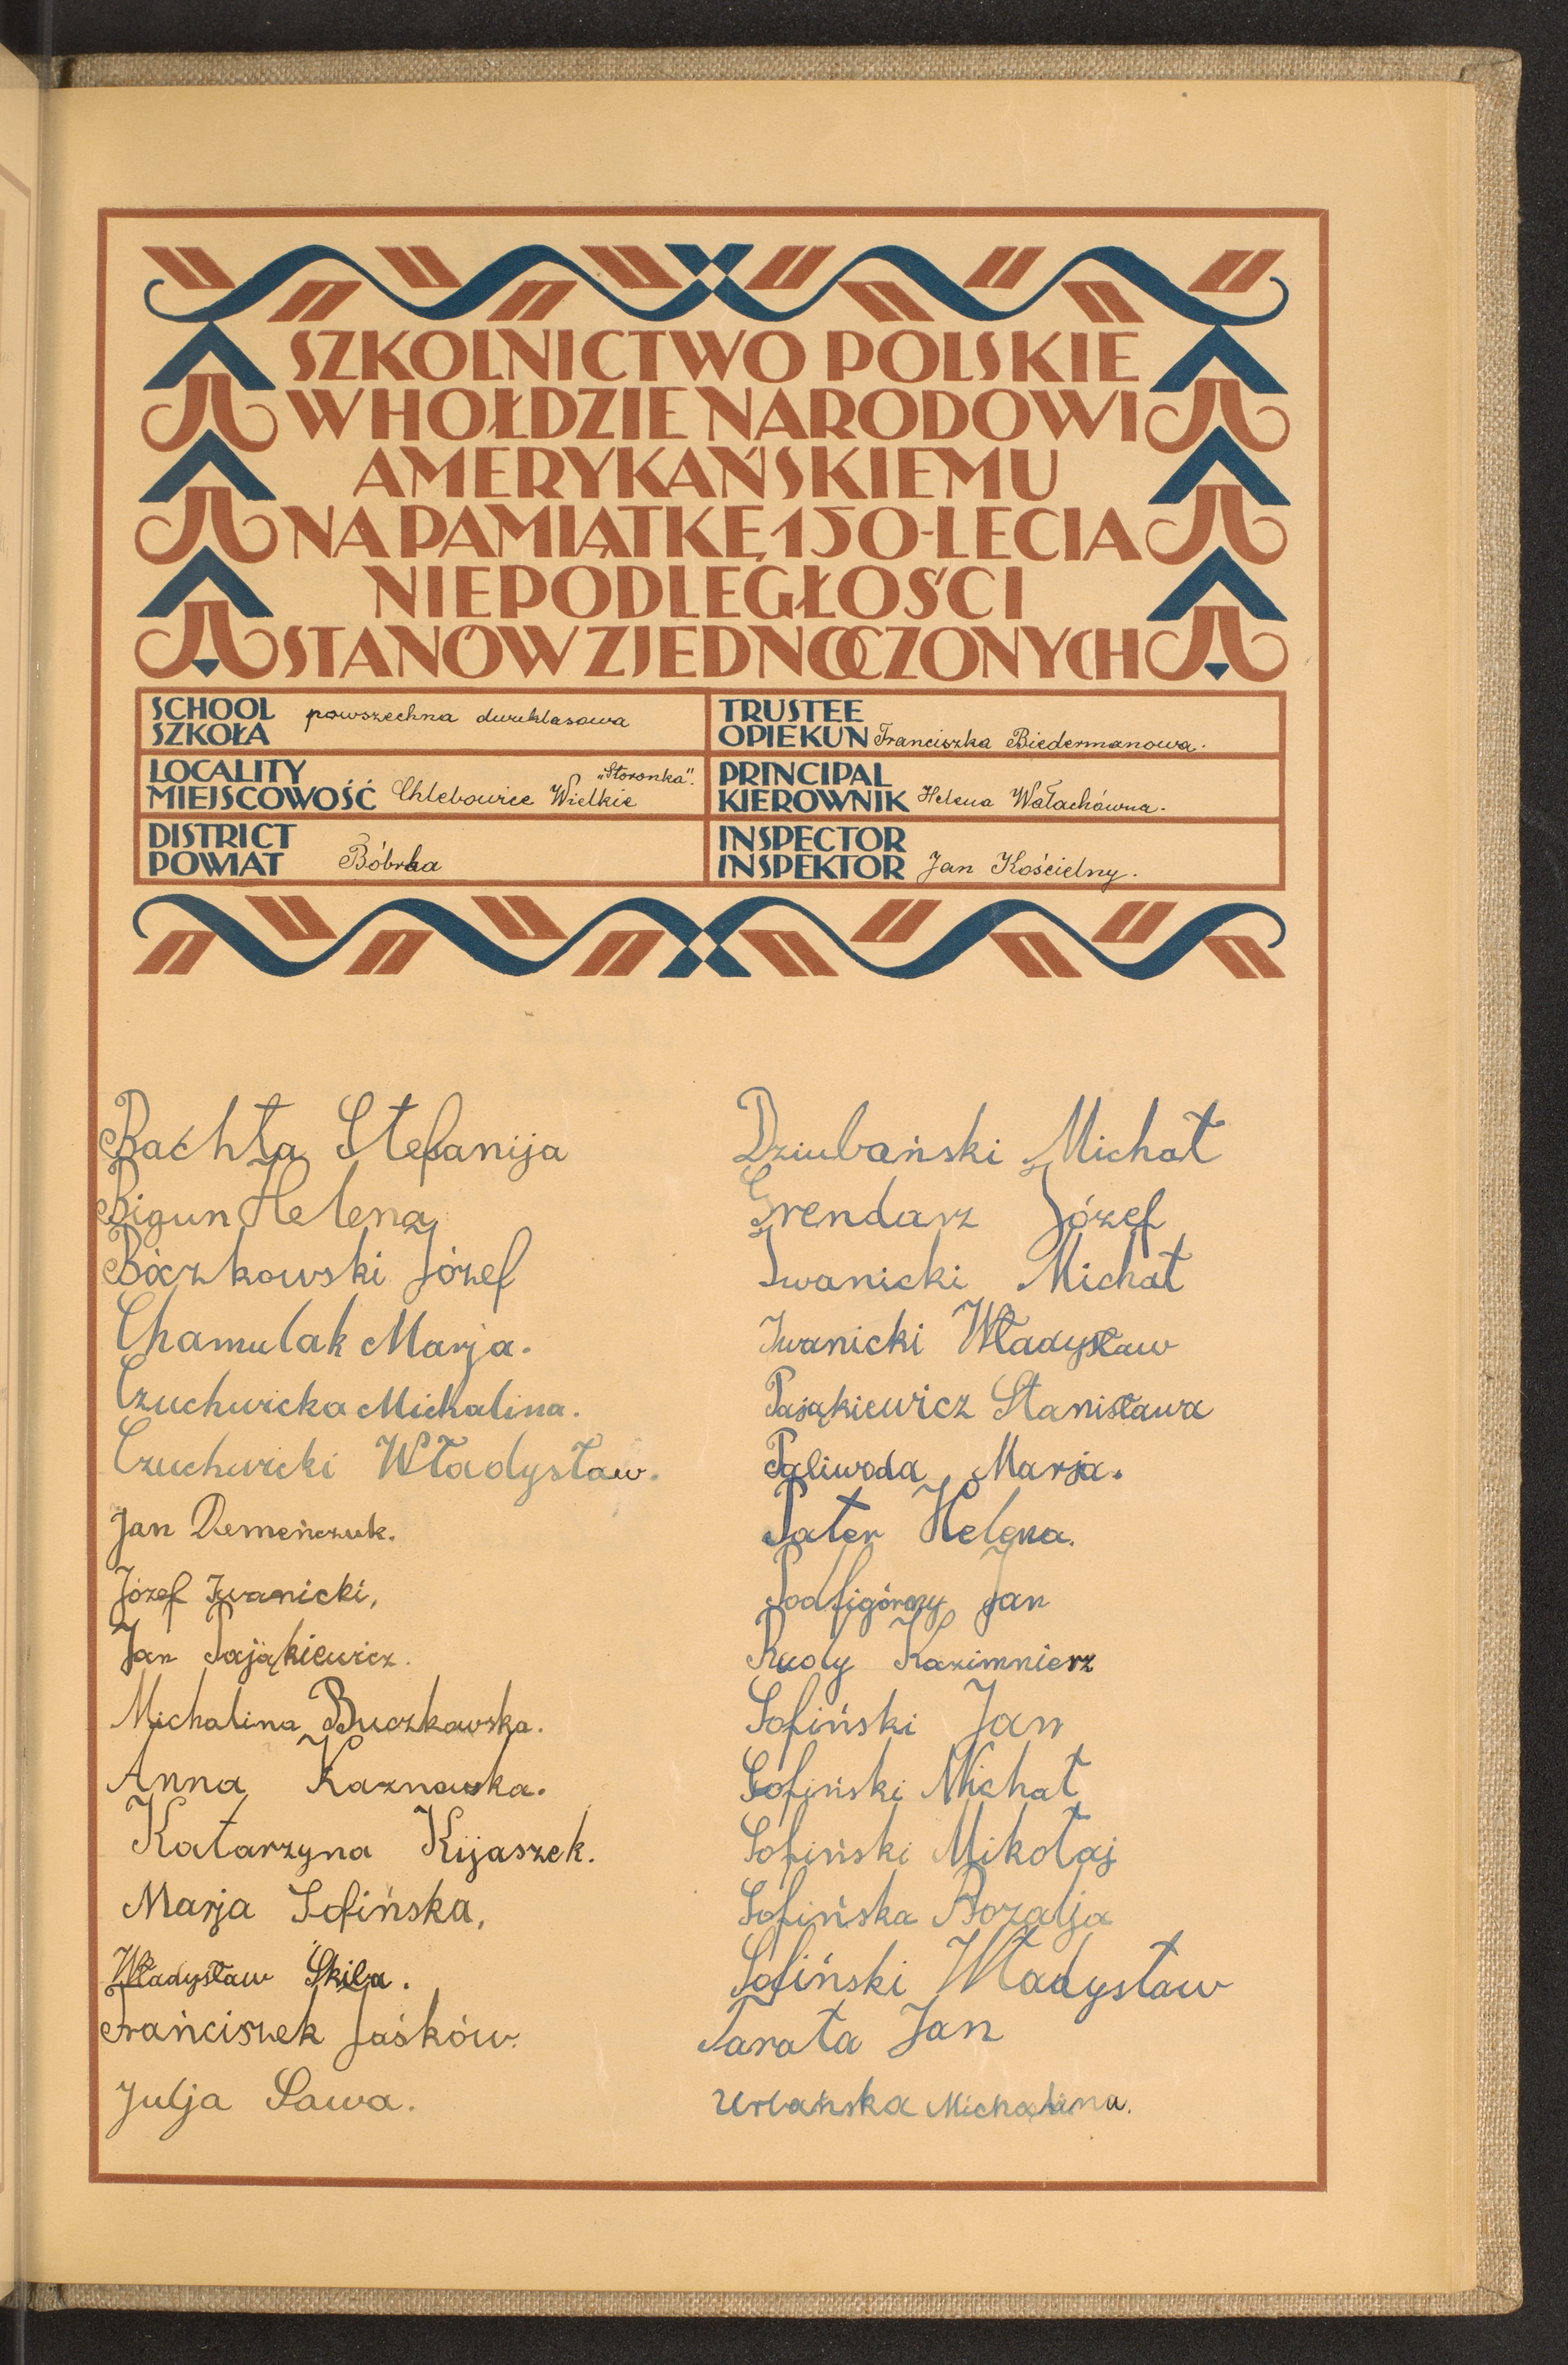 SZKOLNICTWO POLSKIE
W HOŁDZIE NARODOWI
AMERYKAŃSKIEMU
NA PAMIĄTKĘ 150-LECIA
NIEPODLEGŁOŚCI
STANÓW ZJEDNOCZONYCH
SCHOOL
SZKOŁA powszechna dwuklasowa
TRUSTEE
OPIEKUN Franciszka Biedermanowa.
LOCALITY
MIEJSCOWOŚĆ Chlebowice Wielkie „Storonka".
PRINCIPAL
KIEROWNIK Helena Wołachówna.
DISTRICT
POWIAT Bóbrka
INSPECTOR
INSPEKTOR Jan Kościelny.
Baćhła Stefanija
Bigun Helena
Bóczkowski Józef
Chamulak Marja.
Czuchwicka Michalina.
Czuchwicki Władysław.
Jan Demeńczuk.
Józef Iwanicki,
Jan Pająkiewicz.
Michalina Buczkowska.
Anna Kaznowska.
Katarzyna Kijaszek.
Marja Sofińska,
Władysław Skila.
Frańciszek Jaśków.
Julja Sawa.
Dziubański Michał
Grendarz Józef
Iwanicki Michał
Iwanicki Władysław
Pająkiewicz Stanisława
Paliwoda Marja.
Pater Helena.
Podfigórny Jan
Rudy Kazimnierz
Sofiński Jan
Sofiński Michał
Sofiński Mikołaj
Sofińska Rozalja
Sofiński Władysław
Tarata Jan
Urbańska Michalina.